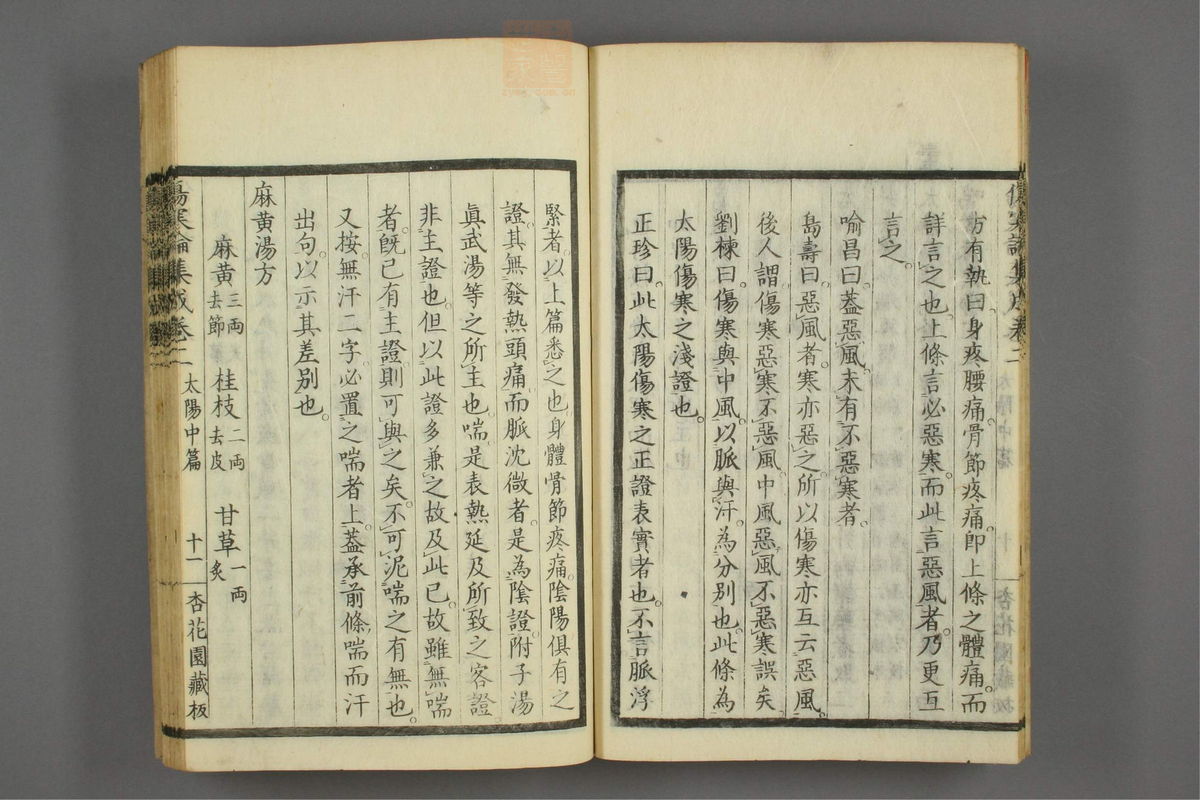 方有執曰身疼腰痛骨節疼痛。即上條之體痛。而
詳言之也。上條言必惡寒。而此言惡風者。乃更互
言之。
喻昌曰。葢惡風。未有不惡寒者。
島壽曰。惡風者。寒亦惡之。所以傷寒亦互云惡風。
後人謂傷寒惡寒不惡風。中風惡風不惡寒。誤矣。
劉棟曰。傷寒與中風。以脈與汗為分別也。此條為
太陽傷寒之淺證也。
正珍曰。此太陽傷寒之正證表實者也。不言脈浮
緊者。以上篇悉之也。身體骨節疼痛。陰陽俱有之
證。其無發熱頭痛。而脈沈微者。是為陰證。附子湯
眞武湯等之所主也。喘是表熱延及所致之客證。
非主證也。但以此證多兼之。故及此已。故雖無喘
者。既已有主證。則可與之矣。不可泥喘之有無也。
又按無汗二字。必置之喘者上。葢承前條喘而汗
出句。以示其差別也。
麻黄湯方
麻黄三兩去節 桂枝二兩去皮 甘草一兩炙
傷寒論集成卷二 太陽中篇 十一 杏花園藏板